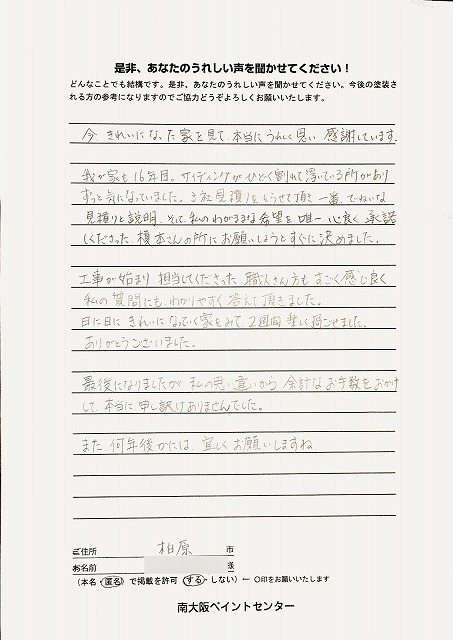 是非、あなたのうれしい声を聞かせてください！
どんなことでも結構です。是非、あなたのうれしい声を聞かせてください。今後の塗装さ
れる方の参考になりますのでご協力どうぞよろしくお願いいたします。
今、きれいになった家を見て、本当にうれしく思い 感謝しています。
我が家も16年目。サイディングがひどく割れて浮いている所があり
ずっと気になっていました。3社見積りをしらせて頂き 一番、ていねいな
見積りと説明、そして、私のわがままな希望を 唯一 心良く 承諾
してくださった 榎本さんの所にお願いしようとすぐに決めました。
工事が始まり 担当してくださった 職人さん方も すごく感じ良く
私の質問にも わかりやすく 答えて頂きました。
日に日に きれいになっていく家をみて 2週間 楽しく過ごせました。
ありがとうございました。
最後になりましたが 私の思い違いから 余計なお手数をおかけ
して、本当に申し訳けありませんでした。
また、何年後かには、宜しくお願いしますね
ご住所 柏原 市
お名前 様
（本名・匿名）で掲載を許可（する・しない）← ○印をお願いいたします
南大阪ペイントセンター